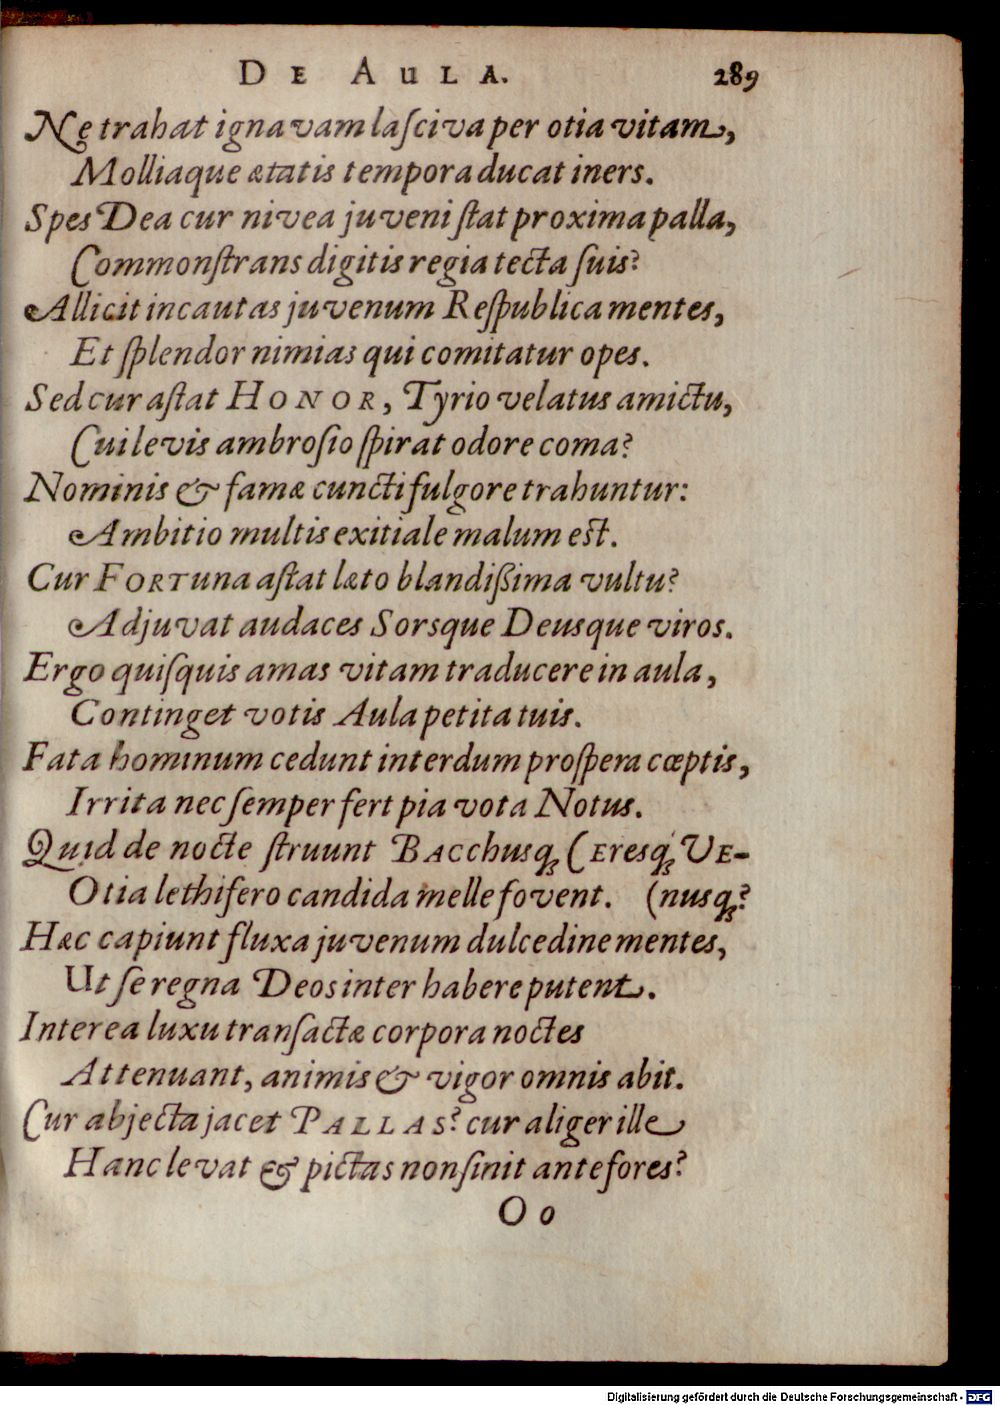 DE AULA. 289
Ne trahat ignavam laſciva per otia vitam,
Molliaque ætatis tempora ducat iners.
Spes Dea cur nivea juveni ſtat proxima palla,
Commonſtrans digitis regia tecta ſuis?
Allicit incautas juvenum Reſpublica mentes,
Et ſplendor nimias qui comitatur opes.
Sed cur aſtat HONOR, Tyrio velatus amictu,
Cui levis ambroſio ſpirat odore coma?
Nominis & famæ cuncti fulgore trahuntur:
Ambitio multis exitiale malum est.
Cur FORTuna aſtat læto blandißima vultu?
Adjuvat audaces Sorsque Deusque viros.
Ergo quiſquis amas vitam traducere in aula,
Continget votis Aula petita tuis.
Fata hominum cedunt interdum proſpera cœptis,
Irrita nec ſemper fert pia vota Notus.
Quid de nocte ſtruunt BACchusq́; CEresq́; VE-
Otia lethifero candida melle fovent. (nusq́;?
Hæc capiunt fluxa juvenum dulcedine mentes,
Ut ſe regna Deos inter habere putent.
Interea luxu tranſactæ corpora noctes
Attenuant, animis & vigor omnis abit.
Cur abjecta jacet PALLAS? cur aliger ille
Hanc levat & pictas non ſinit ante fores?
Oo
Digitalisierung gefördert durch die Deutsche Forschungsgemeinschaft - DFG